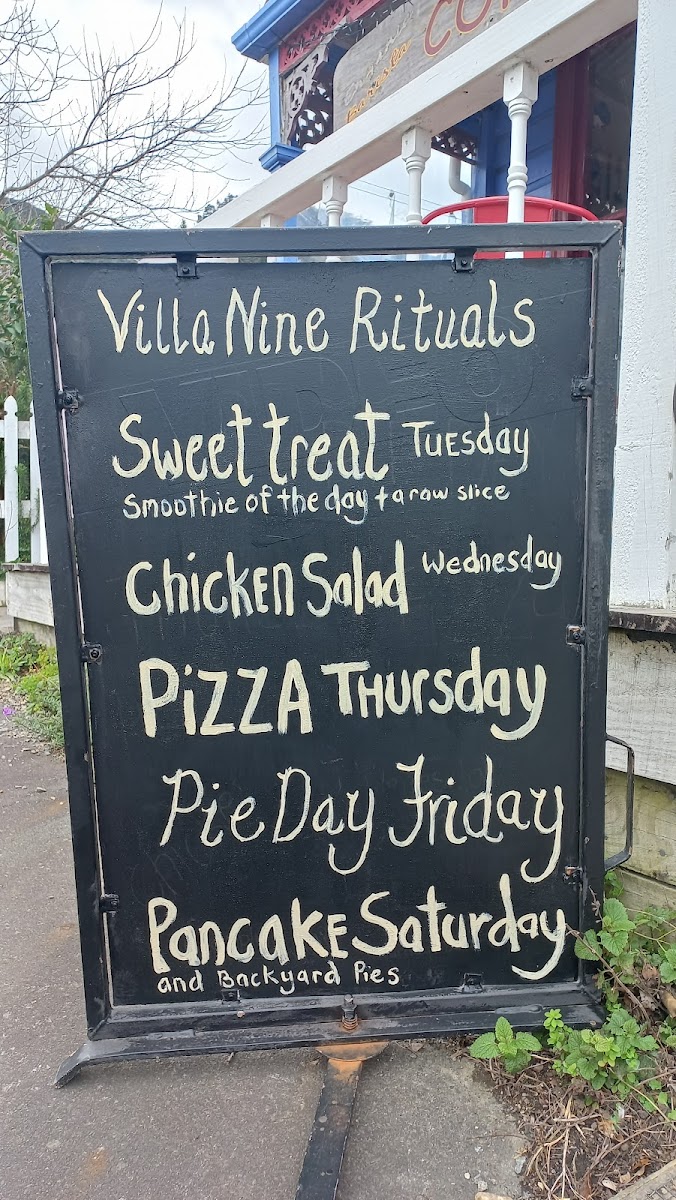 Villa Nine Rituals
Sweet treat Tuesday
Smoothie of the day + a raw slice
Chicken Salad Wednesday
Pizza Thursday
Pie Day Friday
Pancake Saturday
and Backyard Pies